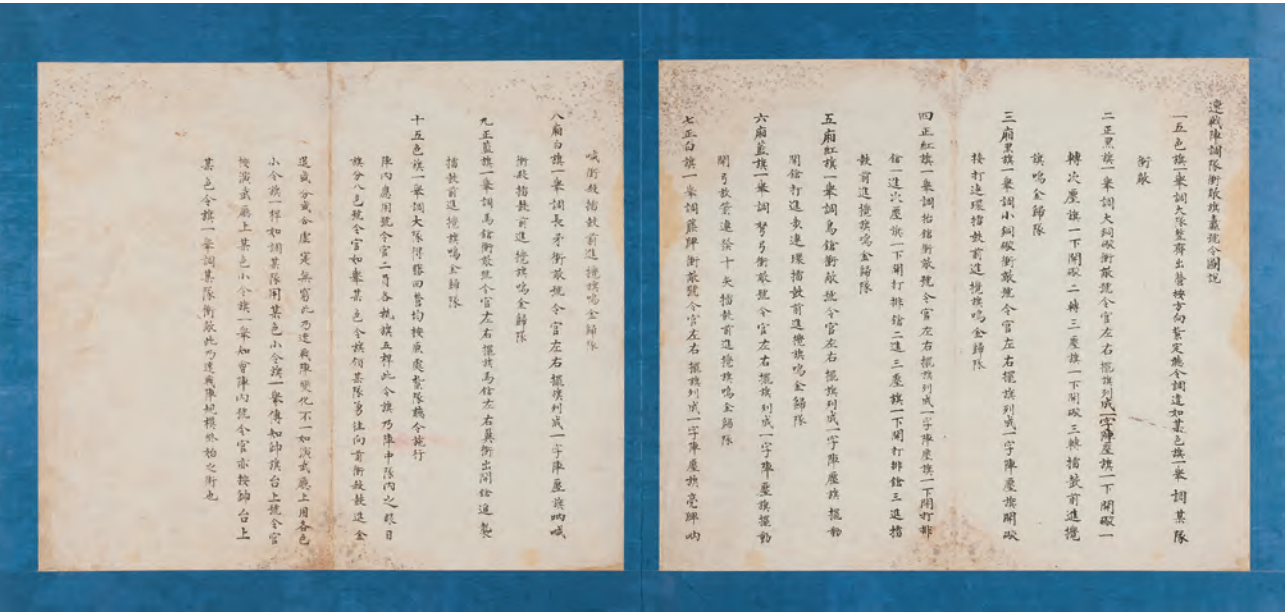 連戰陣調隊衝敵旗纛號令圖說
一五色旗一舉調大隊整齊出營按方向紮定聽令調遣如某色旗一舉調某隊
衝敵
二正黑旗一舉調大銅礮衝敵號令官左右擺旗列成一字陣壓旗一下開礮一
轉次壓旗一下開礮二轉三壓旗一下開礮三轉擂鼓前進攪
旗鳴金歸隊
三廂黑旗一舉調小銅礮衝敵號令官左右擺旗列成一字陣壓旗開礮
接打連環擂鼓前進攪旗鳴金歸隊
四正紅旗一舉調抬鎗衝敵號令官左右擺旗列成一字陣壓旗一下開打排
鎗一進次壓旗一下開打排鎗二進三壓旗一下開打排鎗三進擂
鼓前進攪旗鳴金歸隊
五廂紅旗一舉調鳥鎗衝敵號令官左右擺旗列成一字陣壓旗擺動
開鎗打進步連環擂鼓前進攪旗鳴金歸隊
六廂藍旗一舉調弩弓衝敵號令官左右擺旗列成一字陣壓旗擺動
開弓放箭連發十矢擂鼓前進攪旗鳴金歸隊
七正白旗一舉調藤牌衝敵號令官左右擺旗列成一字陣壓旗亮牌吶
喊衝殺擂鼓前進攪旗鳴金歸隊
八廂白旗一舉調長矛衝敵號令官左右擺旗列成一字陣壓旗吶喊
衝殺擂鼓前進攪旗鳴金歸隊
九正藍旗一舉調馬鎗衝敵號令官左右擺旗馬鎗左右翼衝出開鎗進製
擂鼓前進攪旗鳴金歸隊
十五色旗一舉調大隊得勝回營均按原處紮隊聽令施行
陣內應用號令官二員各執旗五桿此令旗乃陣中隊內之眼目
旗分八色號令官如舉某色令旗領某隊勇往向前衝敵鼓進金
退或分或合虛實無窮此乃連戰陣變化不一如演武廳上用各色
小令旗一樣如調某隊用某色小令旗一舉傳知帥旗台上號令官
按演武廳上某色小令旗一舉知會陣內號令官亦按帥台上
某色令旗一舉調某隊衝敵此乃連戰陣規模終始之術也